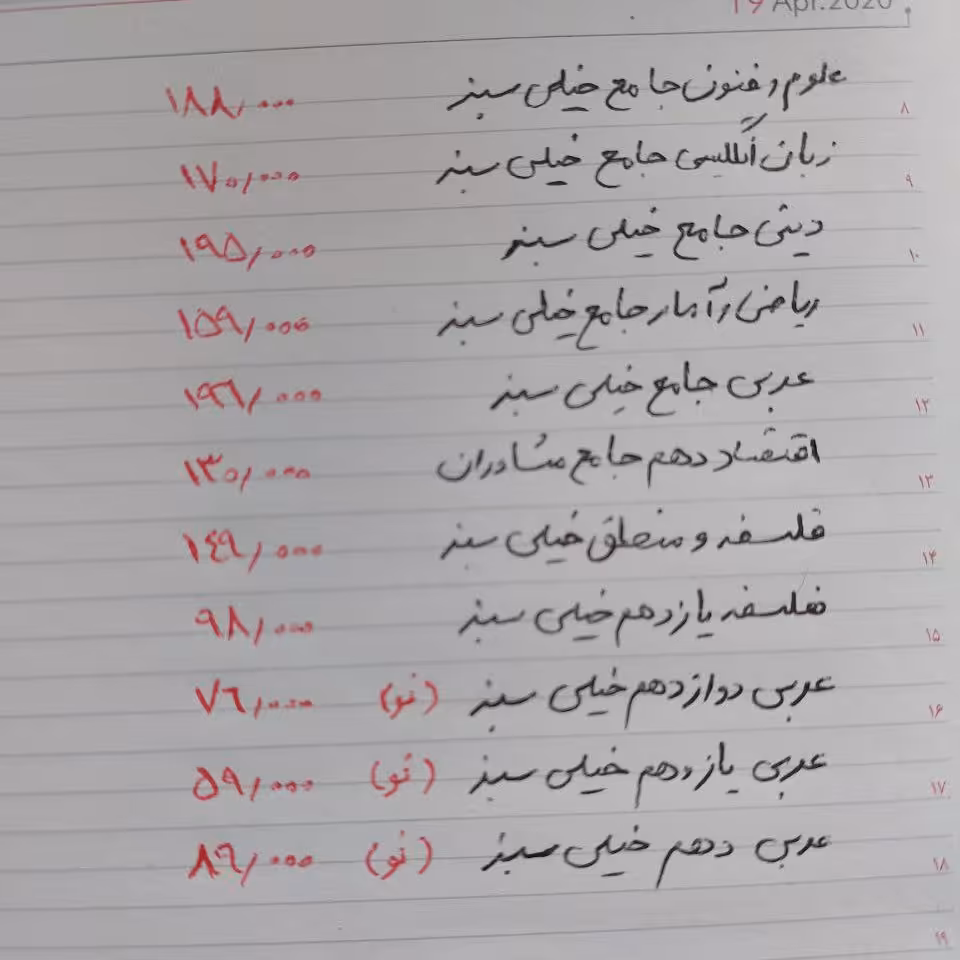 19 Apr.2020
علوم و فنون جامع خیلی سبز ۱۸۸/۰۰۰
۸
زبان انگلیسی جامع خیلی سبز ۱۷۰/۰۰۰
۹
دینی جامع خیلی سبز ۱۹۵/۰۰۰
۱۰
ریاضی و آمار جامع خیلی سبز ۱۵۹/۰۰۰
۱۱
عربی جامع خیلی سبز ۱۹۶/۰۰۰
۱۲
اقتصاد دهم جامع مشاوران ۱۳۰/۰۰۰
۱۳
فلسفه و منطق خیلی سبز ۱۴۹/۰۰۰
۱۴
فلسفه یازدهم خیلی سبز ۹۸/۰۰۰
۱۵
عربی دوازدهم خیلی سبز (نو) ۷۶/۰۰۰
۱۶
عربی یازدهم خیلی سبز (نو) ۵۹/۰۰۰
۱۷
عربی دهم خیلی سبز (نو) ۸۶/۰۰۰
۱۸
۱۹